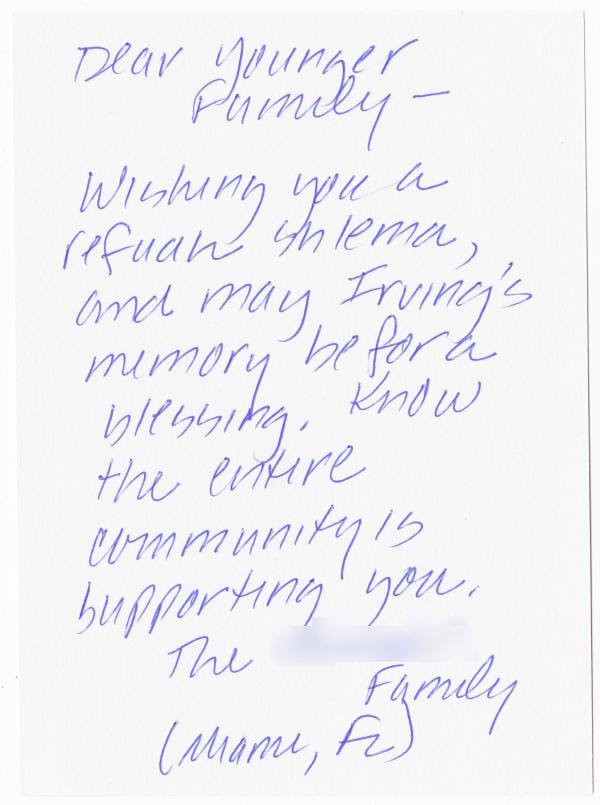 Dear Younger
Family —
Wishing you a
refuah shlema,
and may Irving's
memory be for a
blessing. Know
the entire
community is
supporting you.
The
Family
(Miami, FL)